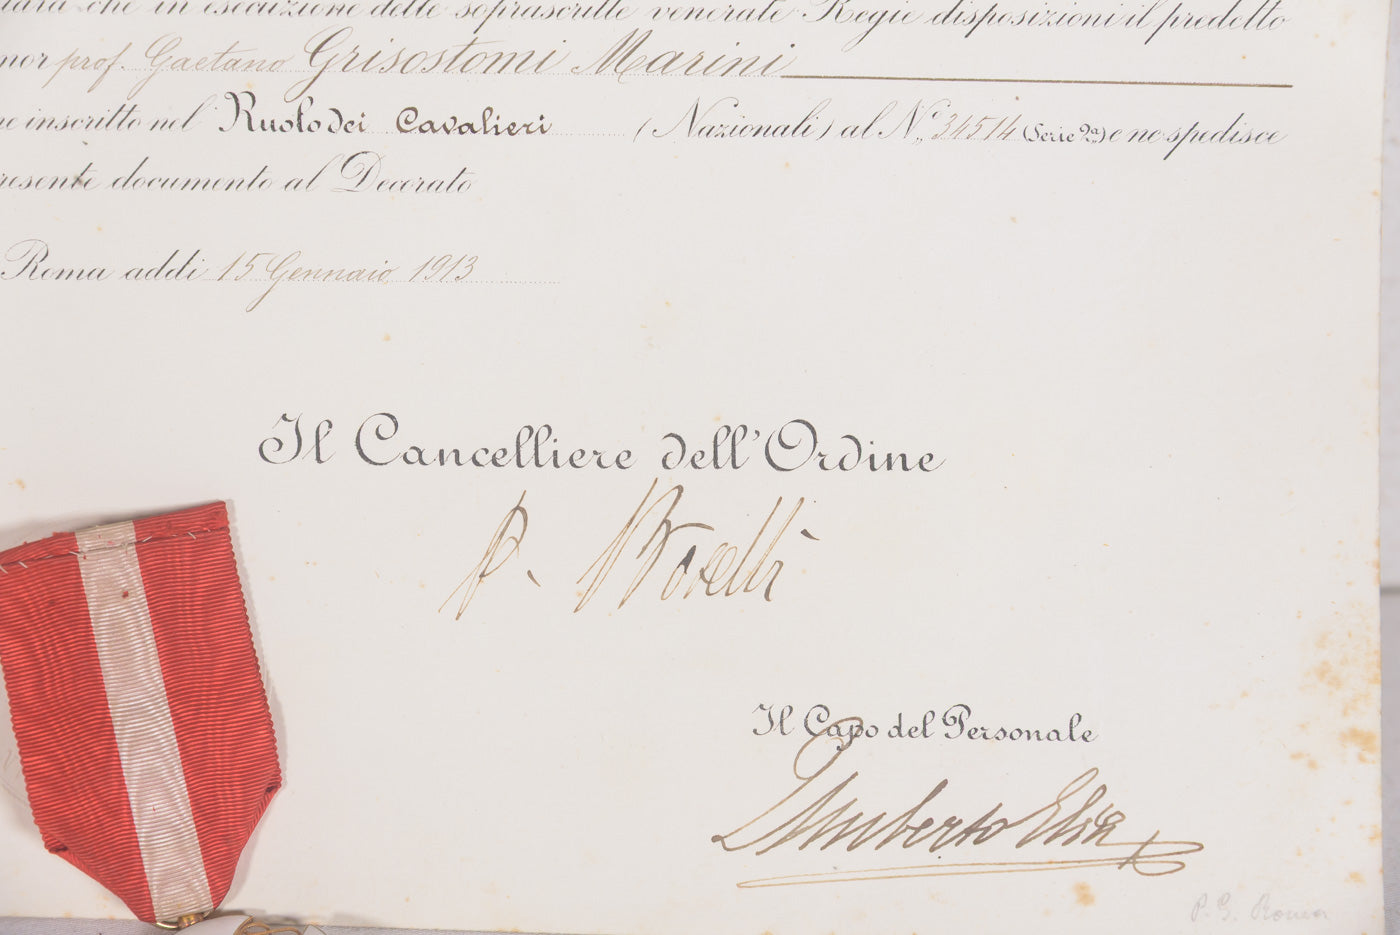 che in esecuzione delle soprascritte venerate Regie disposizioni il predetto
prof. Gaetano Grisostomi Marini
inscritto nel Ruolo dei Cavalieri (Nazionali) al N.° 34514 (Serie 2a) e ne spedisce
presente documento al Decorato
Roma addì 15 Gennaio 1913
Il Cancelliere dell'Ordine
P. Boselli
Il Capo del Personale
Umberto Elia
P. G. Roma